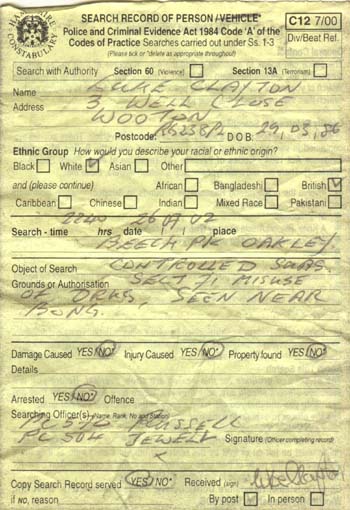 HAMPSHIRE CONSTABULARY
SEARCH RECORD OF PERSON / VEHICLE*
C12 7/00
Police and Criminal Evidence Act 1984 Code 'A' of the
Codes of Practice Searches carried out under Ss. 1-3
Div/Beat Ref.
(Please tick or *delete as appropriate throughout)
Search with Authority Section 60 (Violence) Section 13A (Terrorism)
Name LUKE CLAYTON
Address 3, WELL CLOSE
WOOTON
Postcode: D.O.B. 29, 03, 86
Ethnic Group How would you describe your racial or ethnic origin?
Black White Asian Other
and (please continue) African Bangladeshi British
Caribbean Chinese Indian Mixed Race Pakistani
Search - time 2240 hrs date 26 07 02 place
BEECH PK OAKLEY.
Object of Search CONTROLLED
Grounds or Authorisation SECT MISUSE
OF DRUGS, SEEN NEAR
BONG.
Damage Caused YES/NO* Injury Caused YES/NO* Property found YES/NO*
Details
Arrested YES/NO* Offence
Searching Officer(s) (Name, Rank, No and Station)
PC 570 RUSSELL
PC 504 JEWELL Signature (Officer completing record)
x
Copy Search Record served YES/NO* Received (sign)
if NO, reason By post In person